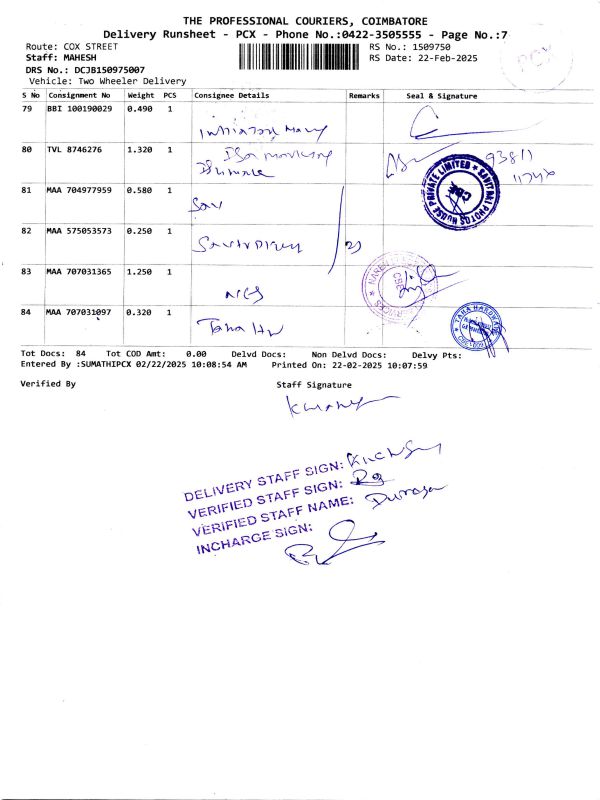 THE PROFESSIONAL COURIERS, COIMBATORE
Delivery Runsheet - PCX - Phone No.:0422-3505555 - Page No.:7
Route: COX STREET
RS No.: 1509750
Staff: MAHESH
RS Date: 22-Feb-2025
DRS No.: DCJB150975007
Vehicle: Two Wheeler Delivery
PCX
S No Consignment No Weight PCS Consignee Details Remarks Seal & Signature
79 BBI 100190029 0.490 1
80 TVL 8746276 1.320 1
81 MAA 704977959 0.580 1
Sav
82 MAA 575053573 0.250 1
83 MAA 707031365 1.250 1
84 MAA 707031097 0.320 1
Taha Hw
SAVITANI PHOTOS HOUSE PRIVATE LIMITED
CBE
TAHA HARDWARE
Tot Docs: 84 Tot COD Amt: 0.00 Delvd Docs: Non Delvd Docs: Delvy Pts:
Entered By :SUMATHIPCX 02/22/2025 10:08:54 AM Printed On: 22-02-2025 10:07:59
Verified By
Staff Signature
DELIVERY STAFF SIGN:
VERIFIED STAFF SIGN:
VERIFIED STAFF NAME:
INCHARGE SIGN: